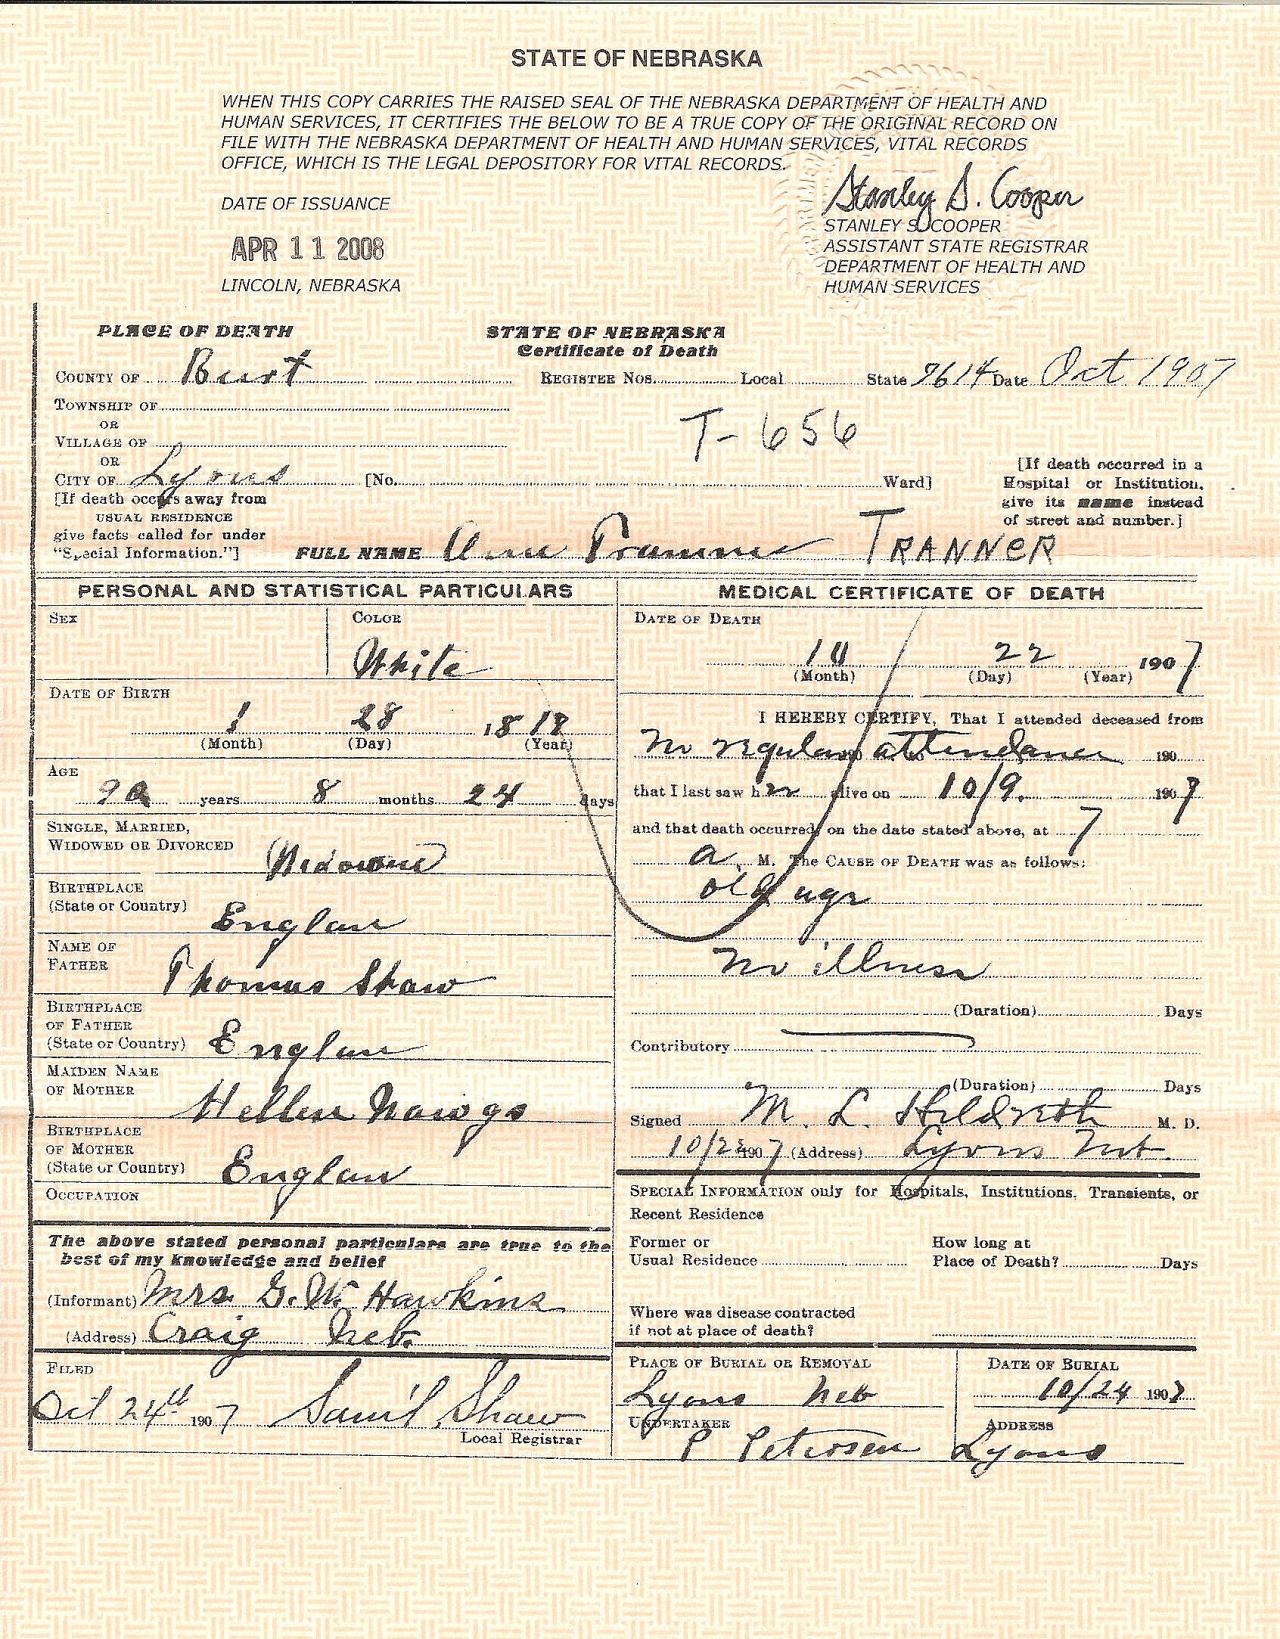 STATE OF NEBRASKA
WHEN THIS COPY CARRIES THE RAISED SEAL OF THE NEBRASKA DEPARTMENT OF HEALTH AND
HUMAN SERVICES, IT CERTIFIES THE BELOW TO BE A TRUE COPY OF THE ORIGINAL RECORD ON
FILE WITH THE NEBRASKA DEPARTMENT OF HEALTH AND HUMAN SERVICES, VITAL RECORDS
OFFICE, WHICH IS THE LEGAL DEPOSITORY FOR VITAL RECORDS.
DATE OF ISSUANCE
APR 11 2008
LINCOLN, NEBRASKA
Stanley S. Cooper
STANLEY S. COOPER
ASSISTANT STATE REGISTRAR
DEPARTMENT OF HEALTH AND
HUMAN SERVICES
PLACE OF DEATH
STATE OF NEBRASKA
Certificate of Death
COUNTY OF Burt
REGISTER NOS. Local State 7614 Date Oct 1907
TOWNSHIP OF
OR
VILLAGE OF
OR
CITY OF Lyons [No. Ward]
T-656
[If death occurred in a
Hospital or Institution,
give its name instead
of street and number.]
[If death occurs away from
USUAL RESIDENCE
give facts called for under
"Special Information."]
FULL NAME Ann TRANNER
PERSONAL AND STATISTICAL PARTICULARS
SEX
COLOR
White
DATE OF BIRTH
1 28 1818
(Month) (Day) (Year)
AGE
years 8 months 24 days
SINGLE, MARRIED,
WIDOWED OR DIVORCED
BIRTHPLACE
(State or Country) Englan
NAME OF
FATHER Thomas Shaw
BIRTHPLACE
OF FATHER
(State or Country) Englan
MAIDEN NAME
OF MOTHER Hellen
BIRTHPLACE
OF MOTHER
(State or Country) Englan
OCCUPATION
The above stated personal particulars are true to the
best of my knowledge and belief
(Informant) Mrs. G. W. Hawkins
(Address) Craig Neb.
FILED
Oct 24th 1907 Saml Shaw
Local Registrar
MEDICAL CERTIFICATE OF DEATH
DATE OF DEATH
10 22 1907
(Month) (Day) (Year)
I HEREBY CERTIFY, That I attended deceased from
no regular attendance 190
that I last saw her alive on 10/9. 1907
and that death occurred, on the date stated above, at 7
a. M. The CAUSE OF DEATH was as follows:
old age
no illness
(Duration) Days
Contributory
(Duration) Days
Signed M. L. Hildreth M. D.
10/23 1907 (Address) Lyons Neb.
SPECIAL INFORMATION only for Hospitals, Institutions, Transients, or
Recent Residence
Former or
Usual Residence
How long at
Place of Death? Days
Where was disease contracted
if not at place of death?
PLACE OF BURIAL OR REMOVAL
Lyons Neb
DATE OF BURIAL
10/24 1907
UNDERTAKER
P Petersen
ADDRESS
Lyons